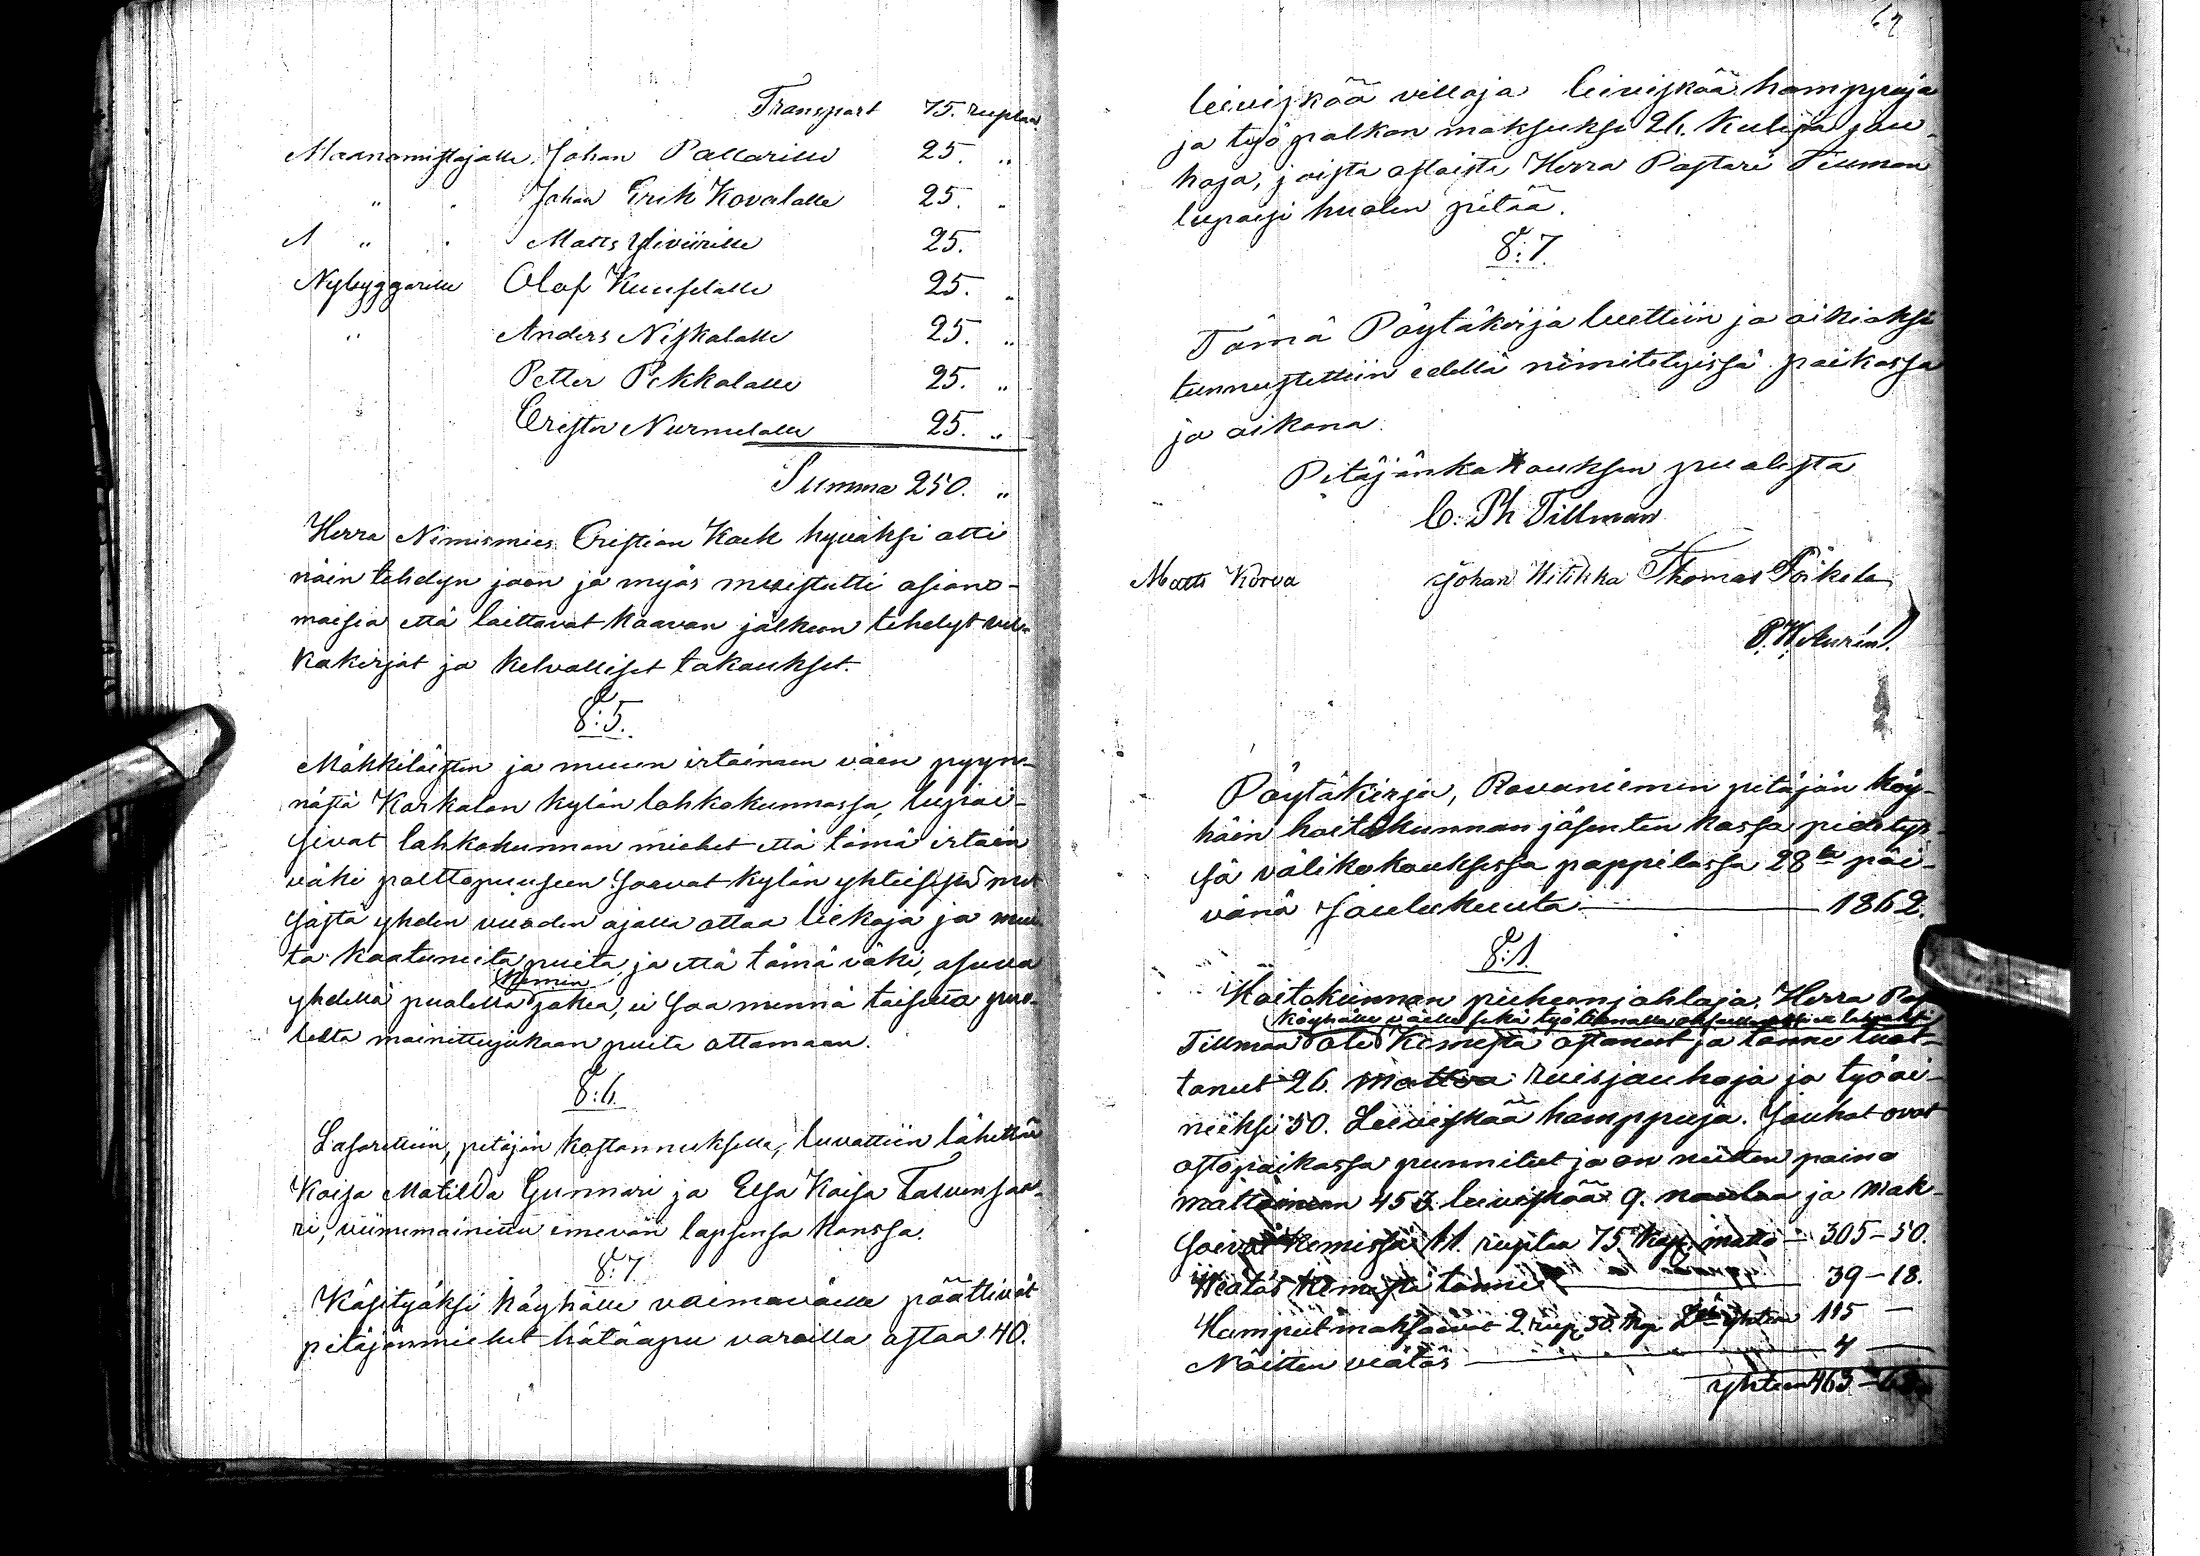 Transport 75. ruplaa
Maanomistajalle Johan Pallarille 25. "
" " Johan Erik Kovalalle 25. "
" " Matts Yliviirille 25.
Nybyggarille Olof Kuuselalle 25. "
" Anders Niskalalle 25. "
Petter Pekkalalle 25. "
Crister Nurmelalle 25. "
Summa 250. "
Herra Nimismies Cristian Kock hyväksi otti
näin tehdyn jaon ja myös muistutti asiano-
maisia että laittavat kaavan jälkeen tehdyt vel-
kakirjat ja kelvolliset takaukset.
§:5.
Mökkiläisten ja muun irtaimen väen pyyn-
nöstä Korkalon kylän lohkokunnassa, lupai-
sivat lohkokunnan miehet että tämä irtain
väki polttopuuseen saavat kylän yhteisestä met-
sästä yhden vuoden ajalla ottaa liekoja ja mui-
ta kaatuneita puita, ja että tämä väki, asuva
Kemin
yhdellä puolella jokea, ei saa mennä toiselta puo-
lelta mainittujakaan puita ottamaan.
§:6.
Lasarettiin, pitäjän kostannuksella, luvattiin lähettää
Kaisa Matilda Gunnari ja Elsa Kaisa Talvensaa-
ri, viimemainittu imevän lapsensa kanssa.
§:7
Käsityöksi köyhälle vaimoväelle päättivät
pitäjänmiehet hätäapu varoilla ostaa 40.
leiviskää villoja leiviskää hamppuja
ja työ palkan maksuksi 26. kulia jau-
hoja, joista ostoista Herra Pastori Tillman
lupaisi huolen pitää.
§:7.
Tämä Pöytäkirja luettiin ja oikiaksi
tunnustettiin edellä nimitetyissä paikassa
ja aikana.
Pitäjänkokouksen puolesta
C. Ph Tillman
Matts Korva Johan Hilikka Thomas Pöikela
P. W. Aurén.
Pöytäkirja, Rovaniemen pitäjän köy-
häin hoitokunnan jäsenten kassa pidetys-
sä välikokouksessa pappilassa 28 päi-
vänä Joulukuuta 1862.
§:1.
Hoitokunnan puheenjohtaja Herra
Köyhälle väelle sekä työ
Tillman oli Kemistä ostanut ja tänne tuot-
tanut 26. mattoa ruisjauhoja ja työai-
neiksi 50. Leiviskää hamppuja. Jauhot ovat
ostopaikassa punnitut ja on niitten paino
mattoineen 453 leiviskää 9. naulaa ja mak-
soivat Kemissä 11. ruplaa 75 kop. matto – 305–50.
Weätös Kemistä tänne 39–18.
Hamput maksoivat 2. rup. 30. kop yhteen 115 –
Näitten veätös 4 –
yhteen 463–